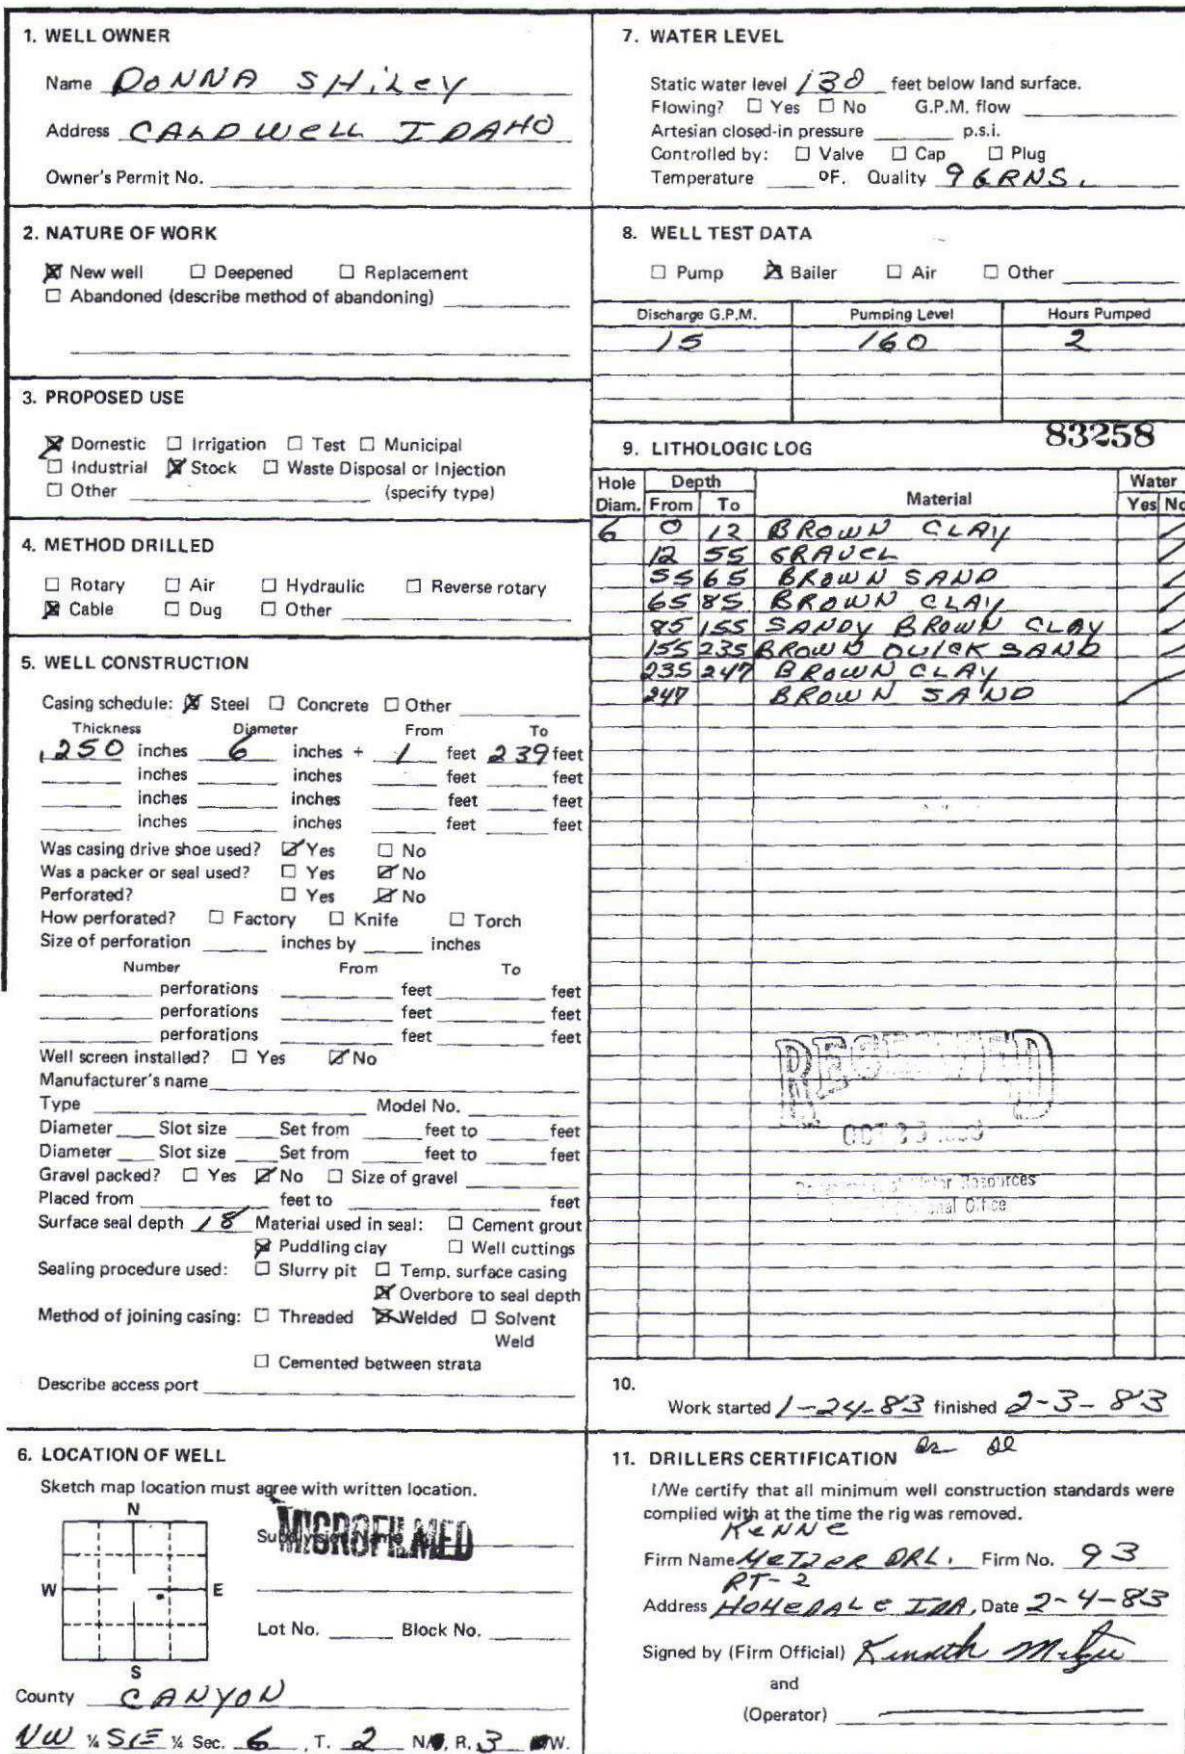 1. WELL OWNER
Name DONNA SHiLeY
Address CALDWeLL IDAHO
Owner's Permit No.
2. NATURE OF WORK
☒ New well ☐ Deepened ☐ Replacement
☐ Abandoned (describe method of abandoning)
3. PROPOSED USE
☒ Domestic ☐ Irrigation ☐ Test ☐ Municipal
☐ Industrial ☒ Stock ☐ Waste Disposal or Injection
☐ Other (specify type)
4. METHOD DRILLED
☐ Rotary ☐ Air ☐ Hydraulic ☐ Reverse rotary
☒ Cable ☐ Dug ☐ Other
5. WELL CONSTRUCTION
Casing schedule: ☒ Steel ☐ Concrete ☐ Other
Thickness Diameter From To
.250 inches 6 inches + 1 feet 239 feet
inches inches feet feet
inches inches feet feet
inches inches feet feet
Was casing drive shoe used? ☒ Yes ☐ No
Was a packer or seal used? ☐ Yes ☒ No
Perforated? ☐ Yes ☒ No
How perforated? ☐ Factory ☐ Knife ☐ Torch
Size of perforation inches by inches
Number From To
perforations feet feet
perforations feet feet
perforations feet feet
Well screen installed? ☐ Yes ☒ No
Manufacturer's name
Type Model No.
Diameter Slot size Set from feet to feet
Diameter Slot size Set from feet to feet
Gravel packed? ☐ Yes ☒ No ☐ Size of gravel
Placed from feet to feet
Surface seal depth 18 Material used in seal: ☐ Cement grout
☒ Puddling clay ☐ Well cuttings
Sealing procedure used: ☐ Slurry pit ☐ Temp. surface casing
☒ Overbore to seal depth
Method of joining casing: ☐ Threaded ☒ Welded ☐ Solvent
Weld
☐ Cemented between strata
Describe access port
6. LOCATION OF WELL
Sketch map location must agree with written location.
N
MICROFILMED
Subdivision Name
W E
Lot No. Block No.
S
County CANYON
NW ¼ SE ¼ Sec. 6, T. 2 N, R. 3 W.
7. WATER LEVEL
Static water level 130 feet below land surface.
Flowing? ☐ Yes ☐ No G.P.M. flow
Artesian closed-in pressure p.s.i.
Controlled by: ☐ Valve ☐ Cap ☐ Plug
Temperature ºF. Quality 9 GRNS.
8. WELL TEST DATA
☐ Pump ☒ Bailer ☐ Air ☐ Other
Discharge G.P.M. Pumping Level Hours Pumped
15 160 2
83258
9. LITHOLOGIC LOG
Hole Depth Water
Diam. From To Material Yes No
6 0 12 BROWN CLAY
12 55 GRAVEL
55 65 BROWN SAND
65 85 BROWN CLAY
85 155 SANDY BROWN CLAY
155 235 BROWN QUICK SAND
235 247 BROWN CLAY
247 BROWN SAND
RECEIVED
OCT
Department of Water Resources
Regional Office
10.
Work started 1-24-83 finished 2-3-83
11. DRILLERS CERTIFICATION
I/We certify that all minimum well construction standards were
complied with at the time the rig was removed.
KeNNe
Firm Name MeTZeR DRL. Firm No. 93
RT-2
Address HOMeDALe IDA, Date 2-4-83
Signed by (Firm Official) Kenneth
and
(Operator)